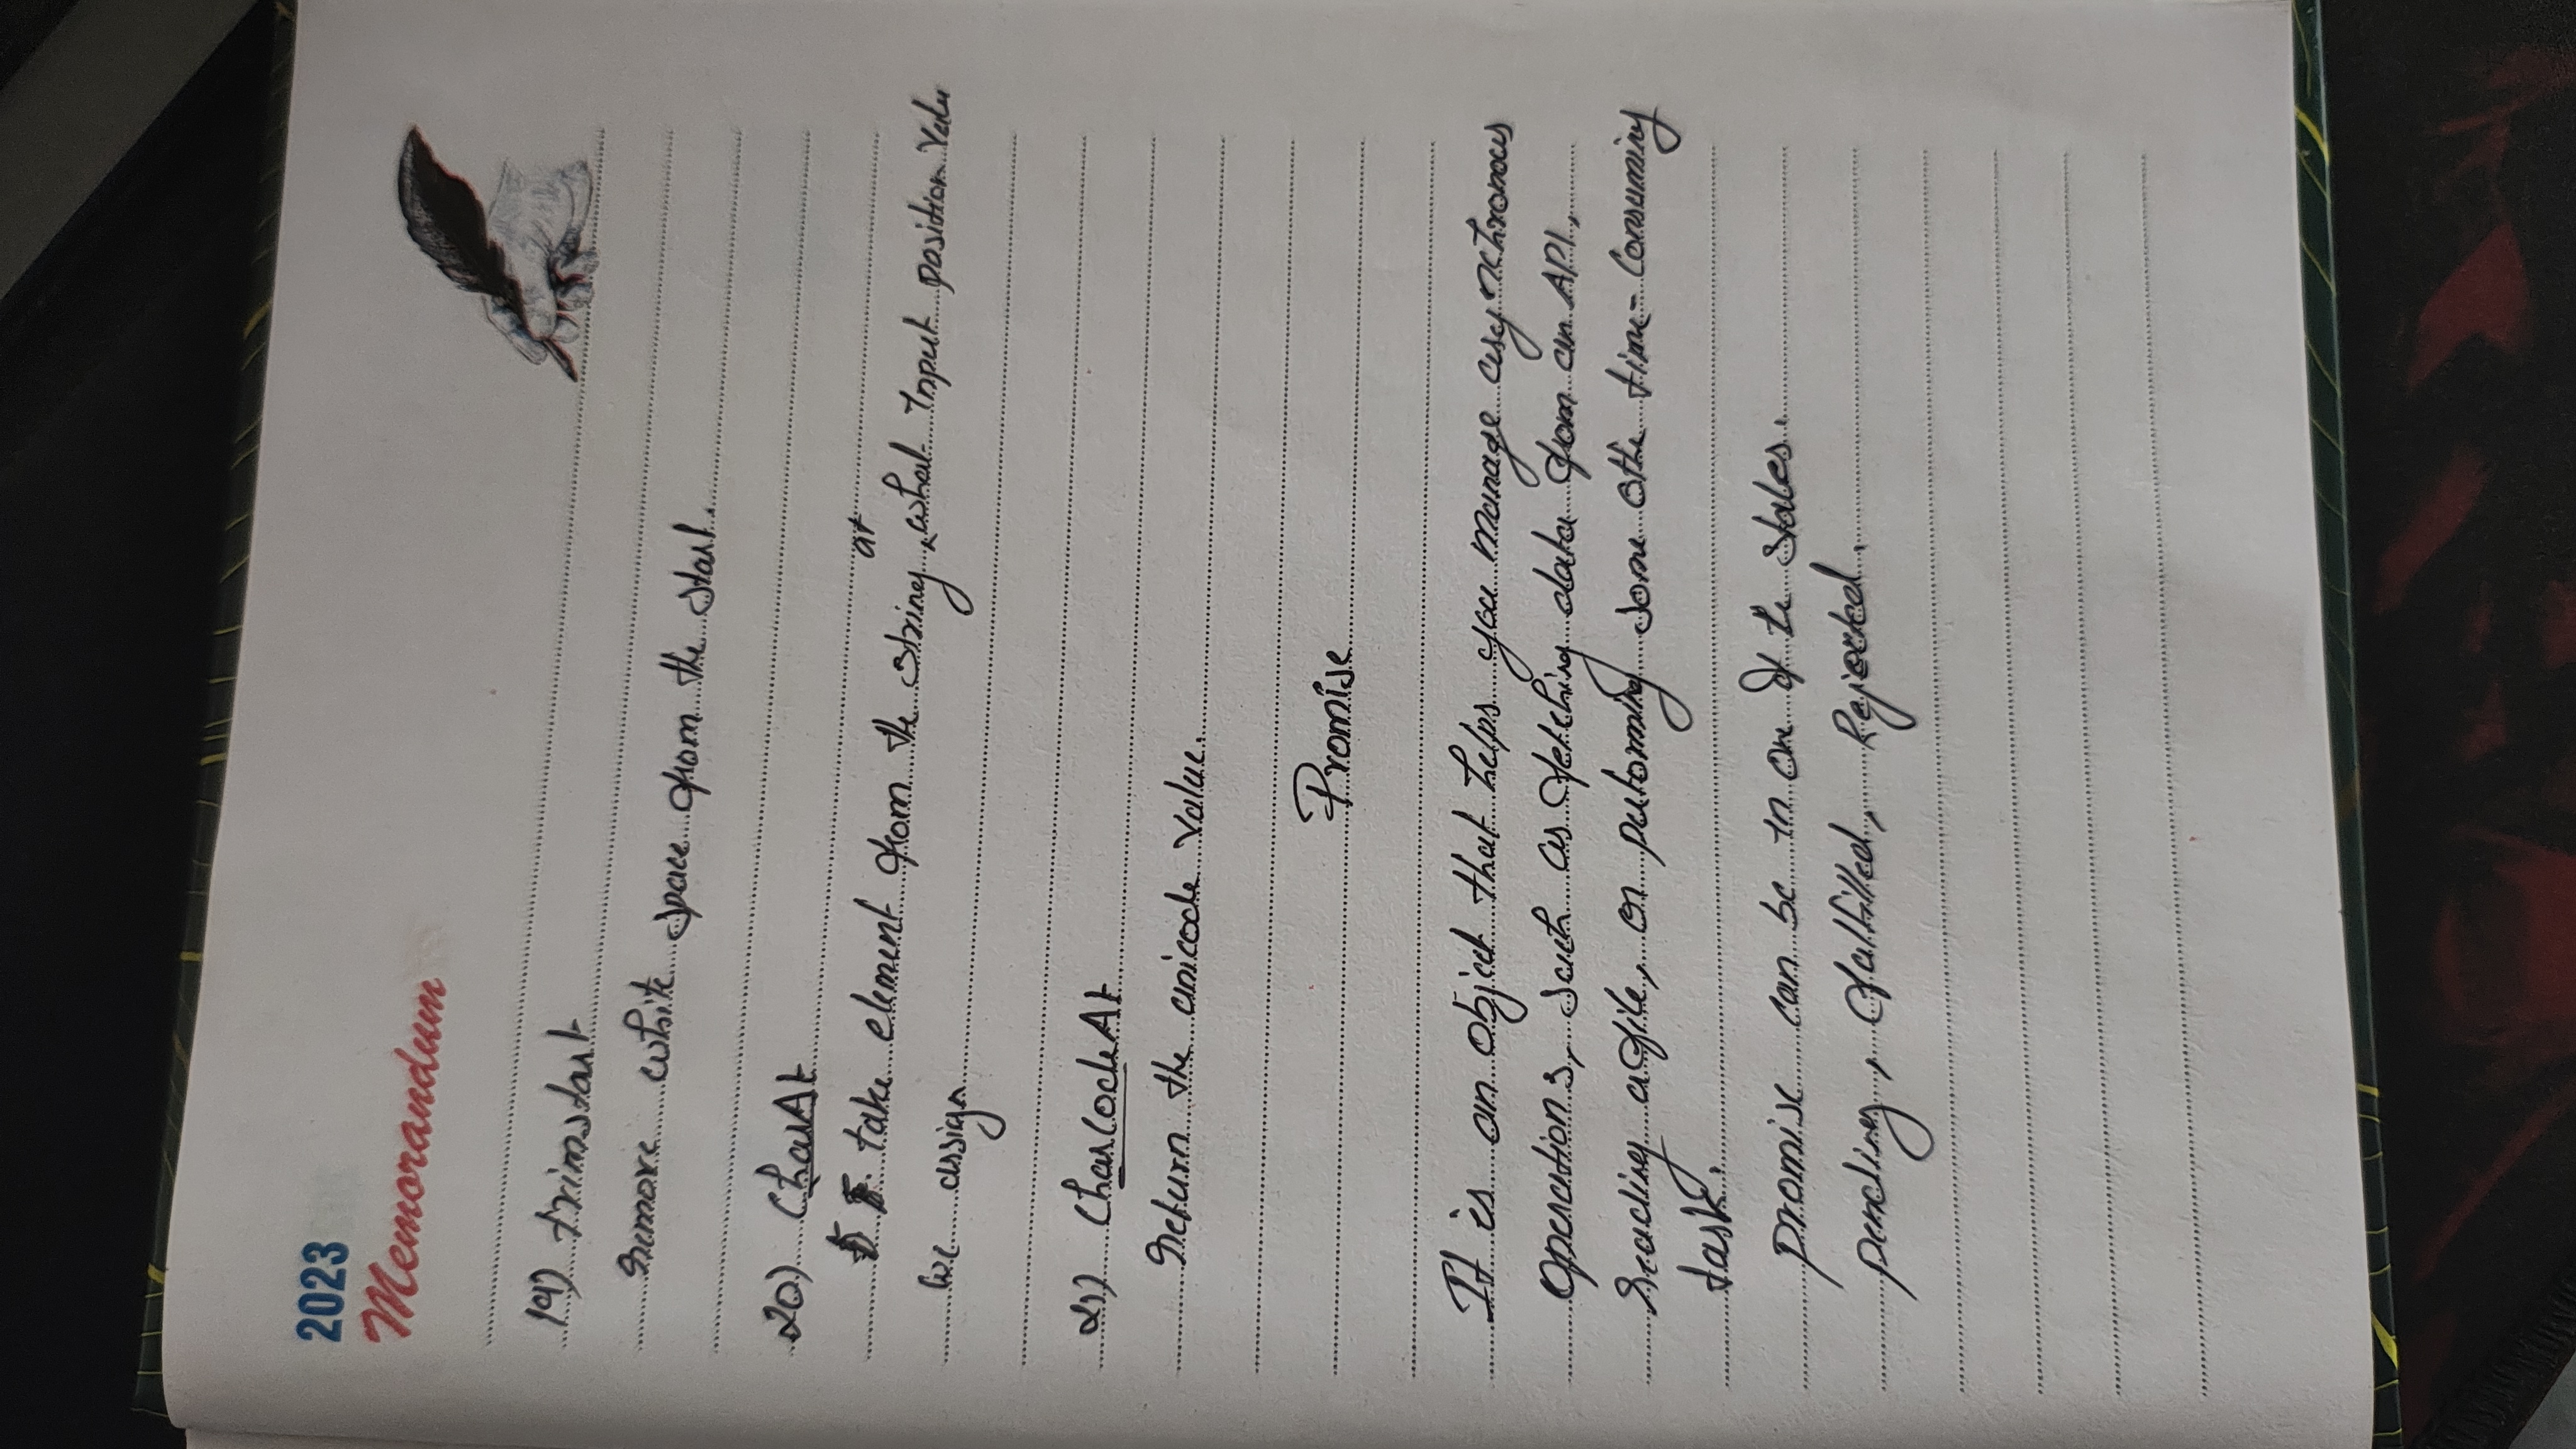 2023
Memorandum
19) trimstart
Remove white space from the start.
20) CharAt
take element from the string, at what Input position Valu
we assign
21) CharCodeAt
Return the unicode Value.
Promise
It is an object that helps you manage asynchronous
operations, such as fetching data from an API,
Reading a file, or peforming some othe time-Consuming
task.
promise can be in one of the states.
pending, fulfilled, Rejected.